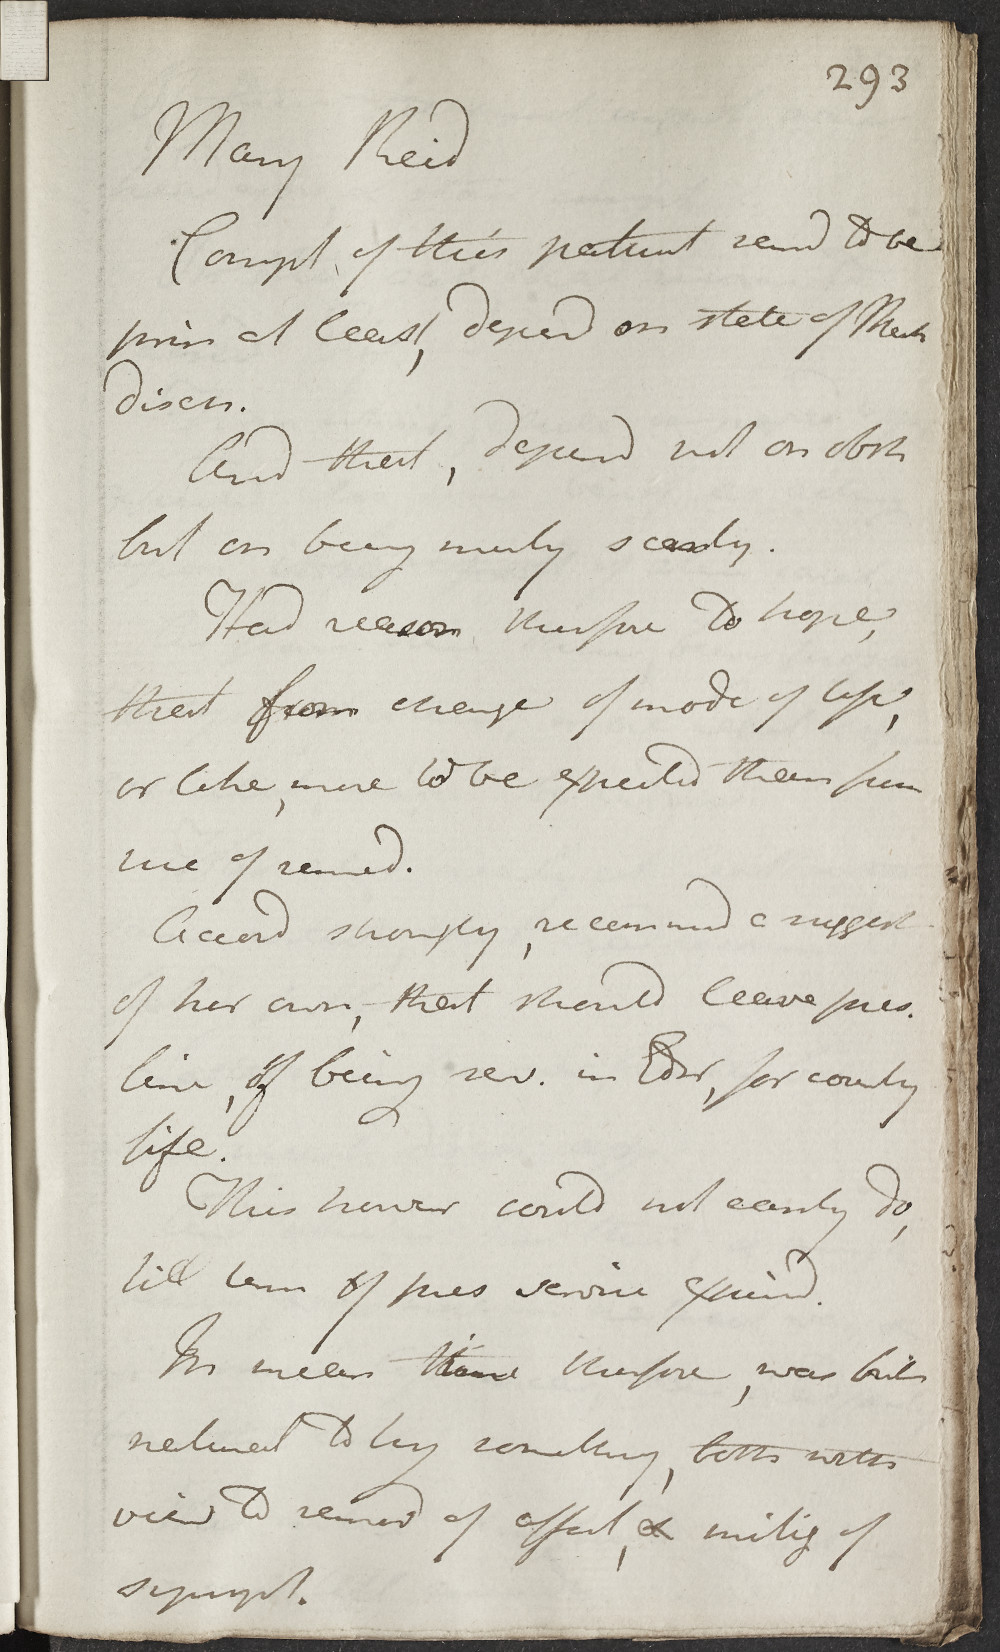 293
Mary Reid
Compl. of this patient seemd to be
prin at least, depend on state of Mens
discn.
And that, depend not on obstr
but on being merely scanty.
Had reason therefore to hope,
that from change of mode of life,
or like, more to be expected than from
use of remed.
Accord strongly, recommend a suggest
of her own, that should leave pres.
line, of being serv. in Edr, for country
life.
This howevr could not easily do,
till term of pres service expired.
In mean time therefore, was
natural to try something, both with
view to remov of affect, & mitig of
sympt.